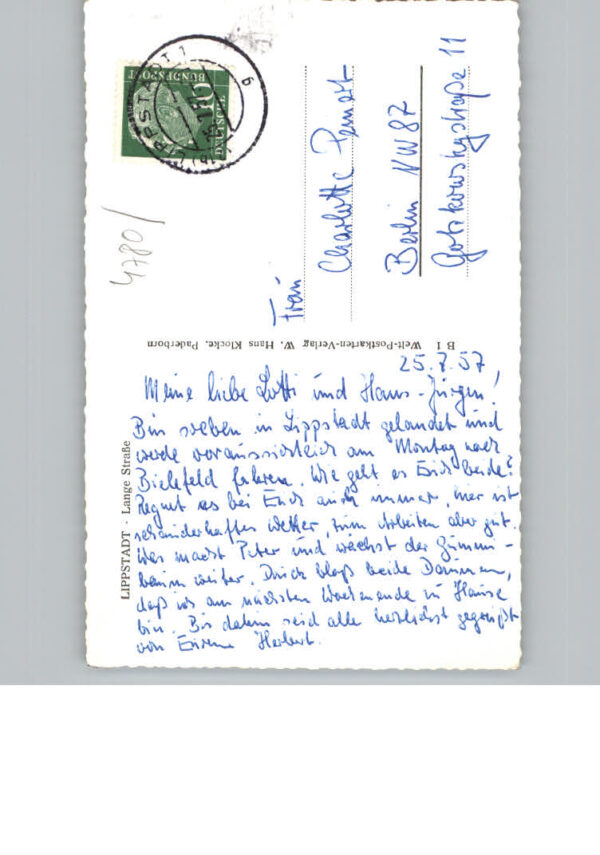 LIPPSTADT 1
DEUTSCHE
BUNDESPOST
10
4780/
Frau
Charlotte
Berlin NW 87
Gotzkowskystraße 11
B 1 Welt-Postkarten-Verlag W. Hans Klocke, Paderborn
LIPPSTADT · Lange Straße
25.7.57
Meine liebe Lotti und Hans-Jürgen!
Bin soeben in Lippstadt gelandet und
werde voraussichtlich am Montag nach
Bielefeld fahren. Wie geht es Euch beide?
Regnet es bei Euch auch immer, hier ist
schauderhaftes Wetter, zum Arbeiten aber gut.
Was macht Peter und wächst der Gummi-
baum weiter. Drück bloß beide Daumen,
daß ich am nächsten Wochenende zu Hause
bin. Bis dahin seid alle herzlichst gegrüßt
von Eurem Herbert.